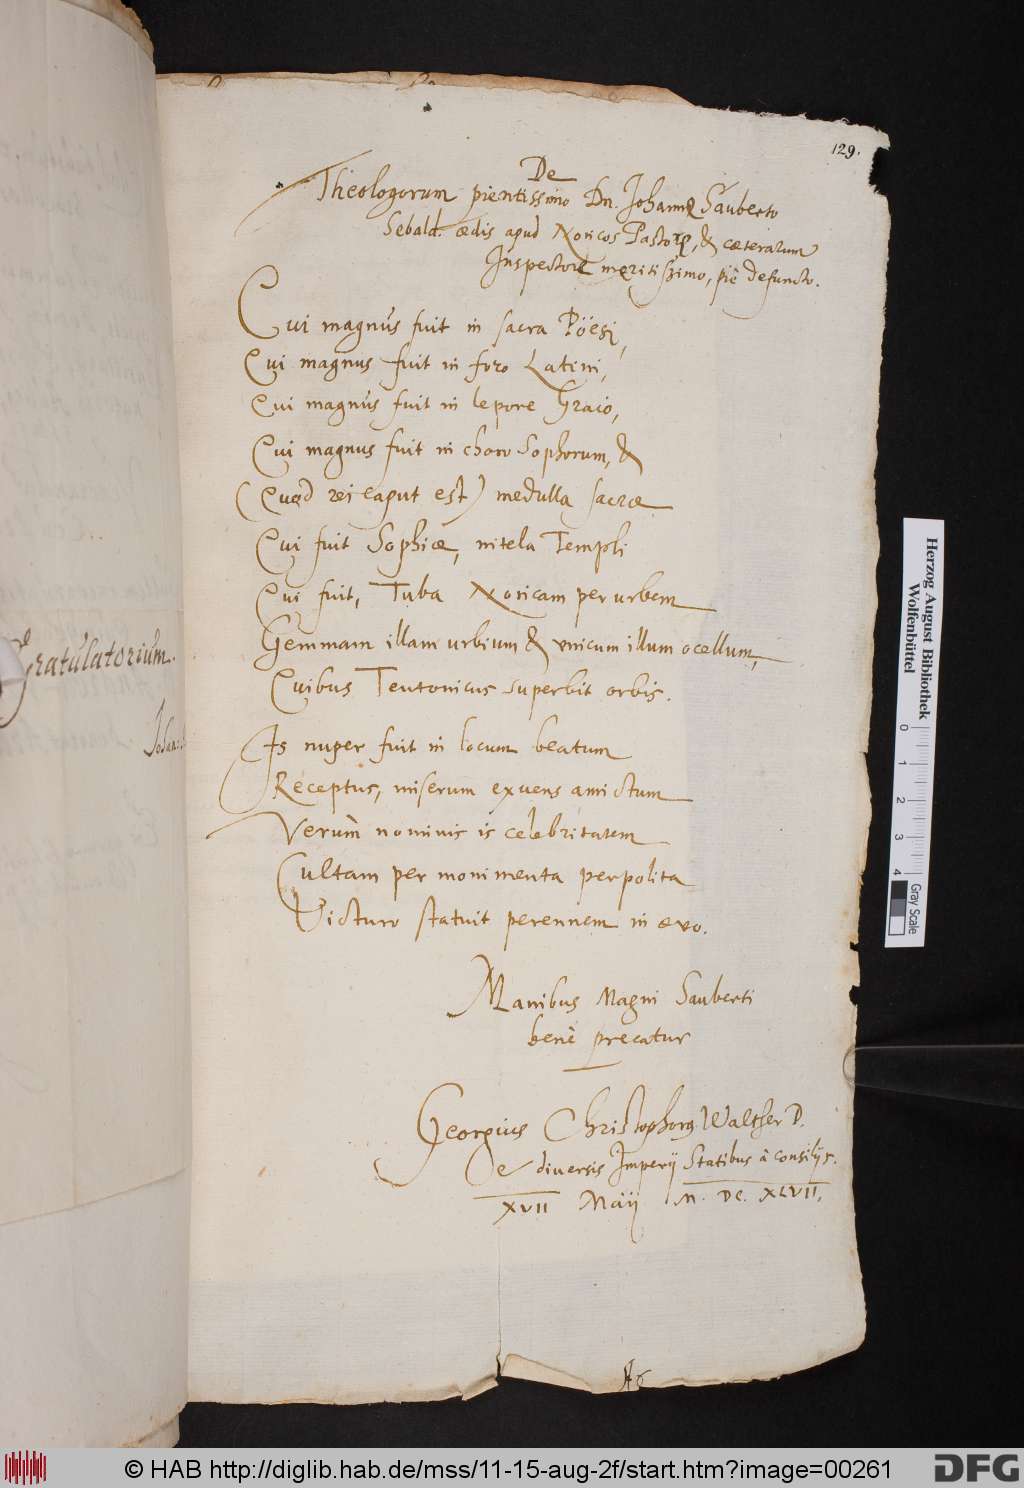 129.
De
Theologorum pientissimo Dn. Johanne Sauberto
Sebald. ædis apud Noricos Pastore, & cæterarum
Inspectore meritissimo, piè defuncto.
Qui magnus fuit in sacra Pöesi,
Qui magnus fuit in foro Latini,
Qui magnus fuit in lepore Graio,
Qui magnus fuit in choro Sophorum, &
(Quod rei caput est) medulla sacræ
Qui fuit Sophiæ, nitela Templi
Qui fuit, Tuba Noricam per urbem
Gemmam illam urbium & vnicum illum ocellum,
Quibus Teutonicus superbit orbis.
Is nuper fuit in locum beatum
Receptus, miserum exuens amictum
Verum nominis is celebritatem
Cultam per monimenta perpolita
Victuro statuit perennem in ævo.
Manibus Magni Sauberti
benè precatur
Georgius Christophorus Walther D.
e diversis Imperij Statibus à consilijs.
XVII Maij M. DC. XLVII.
Gratulatorium.
Herzog August Bibliothek
Wolfenbüttel
0 1 2 3 4
Gray Scale
© HAB http://diglib.hab.de/mss/11-15-aug-2f/start.htm?image=00261
DFG